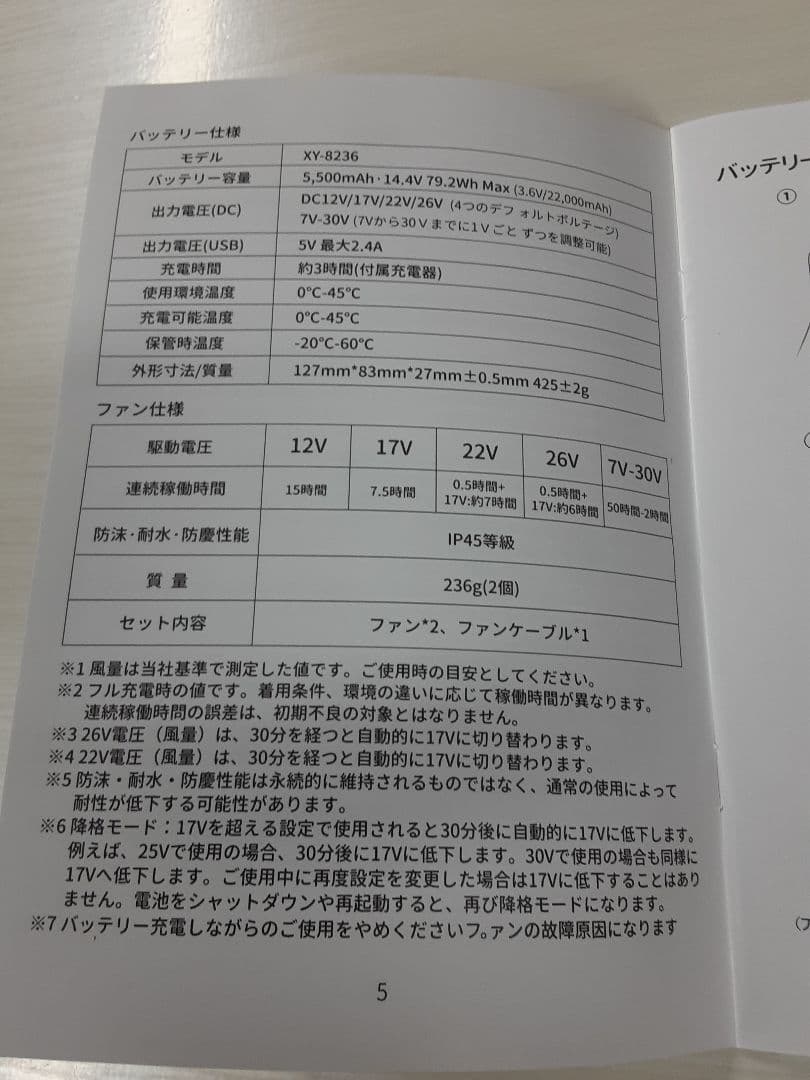 バッテリー仕様
モデル XY-8236
バッテリー容量 5,500mAh·14.4V 79.2Wh Max (3.6V/22,000mAh)
出力電圧(DC) DC12V/17V/22V/26V (4つのデフ ォルトボルテージ)
7V-30V (7Vから30Ｖまでに1Ｖごと ずつを調整可能)
出力電圧(USB) 5V 最大2.4A
充電時間 約3時間(付属充電器)
使用環境温度 0℃-45℃
充電可能温度 0℃-45℃
保管時温度 -20℃-60℃
外形寸法/質量 127mm*83mm*27mm±0.5mm 425±2g
ファン仕様
駆動電圧 12V 17V 22V 26V 7V-30V
連続稼働時間 15時間 7.5時間 0.5時間+ 0.5時間+ 50時間-2時間
17V:約7時間 17V:約6時間
防沫·耐水·防慶性能 IP45等級
質 量 236g(2個)
セット内容 ファン*2、ファンケーブル*1
※1 風量は当社基準で測定した値です。ご使用時の目安としてください。
※2 フル充電時の値です。着用条件、環境の違いに応じて稼働時間が異なります。
連続稼働時問の誤差は、初期不良の対象とはなりません。
※3 26V電圧（風量）は、30分を経つと自動的に17Vに切り替わります。
※4 22V電圧（風量）は、30分を経つと自動的に17Vに切り替わります。
※5 防沫・耐水・防慶性能は永続的に維持されるものではなく、通常の使用によって
耐性が低下する可能性があります。
※6 降格モード：17Vを超える設定で使用されると30分後に自動的に17Vに低下します。
例えば、25Vで使用の場合、30分後に17Vに低下します。30Vで使用の場合も同様に
17Vへ低下します。ご使用中に再度設定を変更した場合は17Vに低下することはあり
ません。電池をシャットダウンや再起動すると、再び降格モードになります。
※7 バッテリー充電しながらのご使用をやめくださいフ。ァンの故障原因になります
5
バッテリー
①